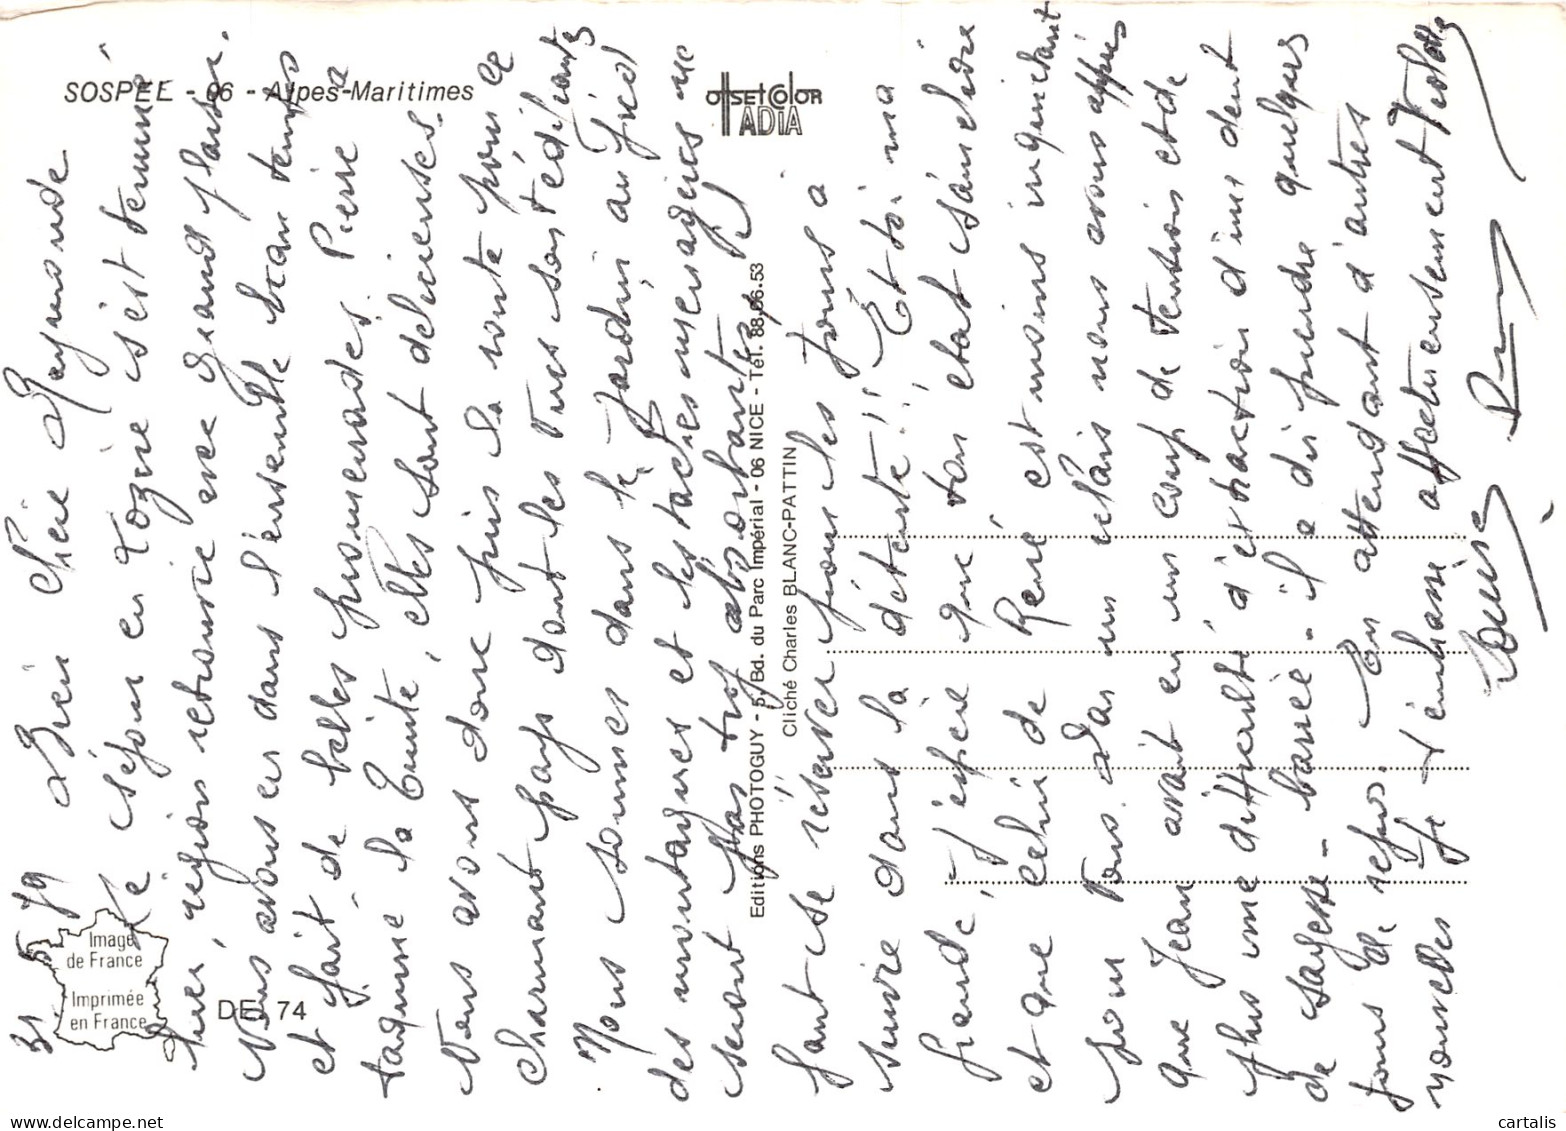 SOSPEL - 06 - Alpes-Maritimes
OFFSET COLOR
ADIA
Image
de France
Imprimée
en France
DEL 74
Editions PHOTOGUY - 5, Bd. du Parc Impérial - 06 NICE - Tél. 88.06.53
Cliché Charles BLANC-PATTIN
31 5 79 Bien Chère Raymonde
Le séjour en est terminé
hier, région retrouvée avec grand plaisir.
Nous avons eu dans l'ensemble beau temps
et fait de belles promenades. Pierre
taquiné la truite, elles sont délicieuses.
Nous avons donc pris la route pour ce
charmant pays dont les vues sont édifiantes
Nous sommes dans le jardin au pied
des montagnes et les taches ménagères ne
seront pas trop absorbantes, il
faut se réserver pour les jours à
suivre dans la détente!! Et toi ma
grande, j'espère que ton état s'améliore
et que celui de René est moins inquiétant
pour vous. Dans un relais nous avons appris
que Jean avait eu un coup de tension et de
plus une difficulté d'extraction d'une dent
de sagesse - barrée - il a dû prendre quelques
jours de repos. En attendant d'autres
nouvelles je t'embrasse affectueusement
Louise